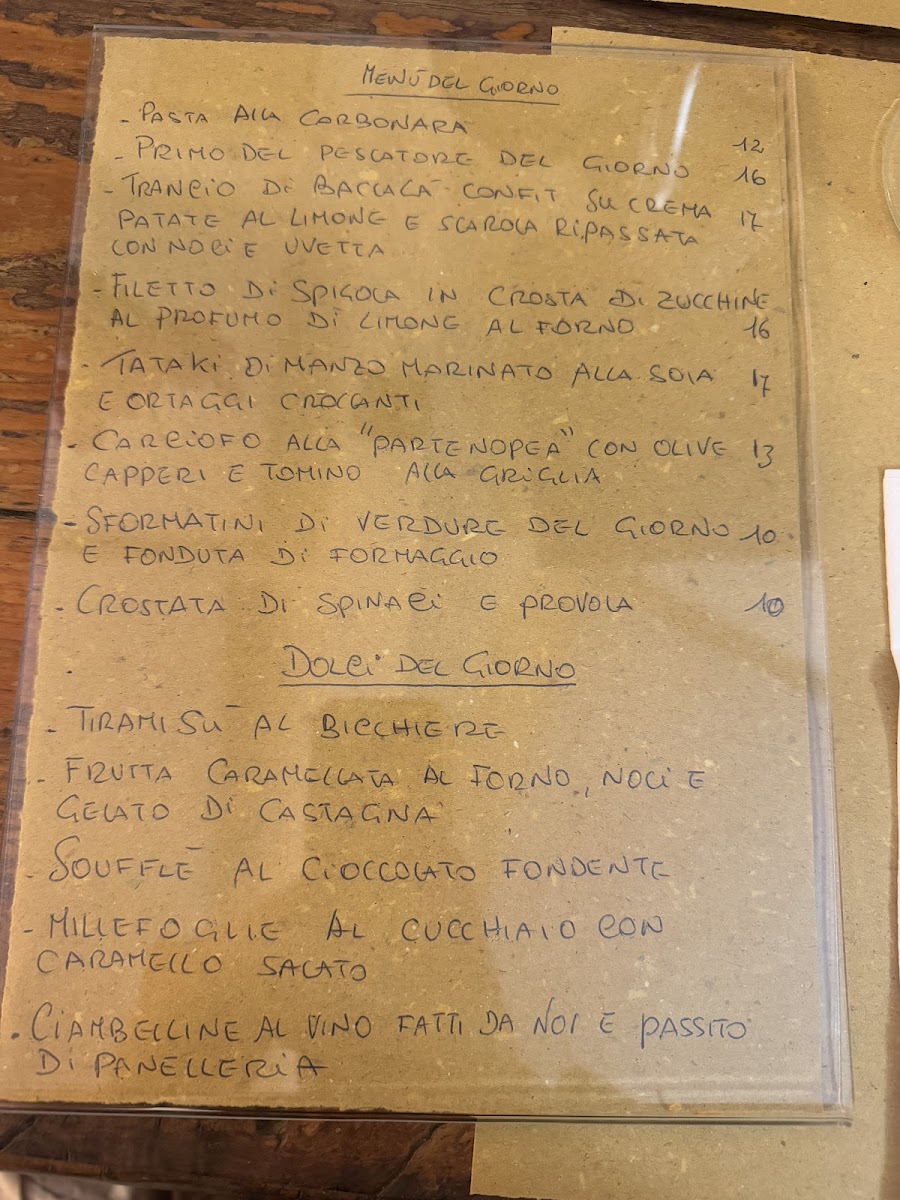 MENÙ DEL GIORNO
- PASTA ALLA CARBONARA 12
- PRIMO DEL PESCATORE DEL GIORNO 16
- TRANCIO DI BACCALÀ CONFIT SU CREMA 17
PATATE AL LIMONE E SCAROLA RIPASSATA
CON NOCI E UVETTA
- FILETTO DI SPIGOLA IN CROSTA DI ZUCCHINE
AL PROFUMO DI LIMONE AL FORNO 16
- TATAKI DI MANZO MARINATO ALLA SOIA 17
E ORTAGGI CROCCANTI
- CARCIOFO ALLA "PARTENOPEA" CON OLIVE 13
CAPPERI E TOMINO ALLA GRIGLIA
- SFORMATINI DI VERDURE DEL GIORNO 10
E FONDUTA DI FORMAGGIO
- CROSTATA DI SPINACI E PROVOLA 10
DOLCI DEL GIORNO
- TIRAMISÙ AL BICCHIERE
- FRUTTA CARAMELLATA AL FORNO, NOCI E
GELATO DI CASTAGNA
- SOUFFLÈ AL CIOCCOLATO FONDENTE
- MILLEFOGLIE AL CUCCHIAIO CON
CARAMELLO SALATO
. CIAMBELLINE AL VINO FATTI DA NOI E PASSITO
DI PANELLERIA